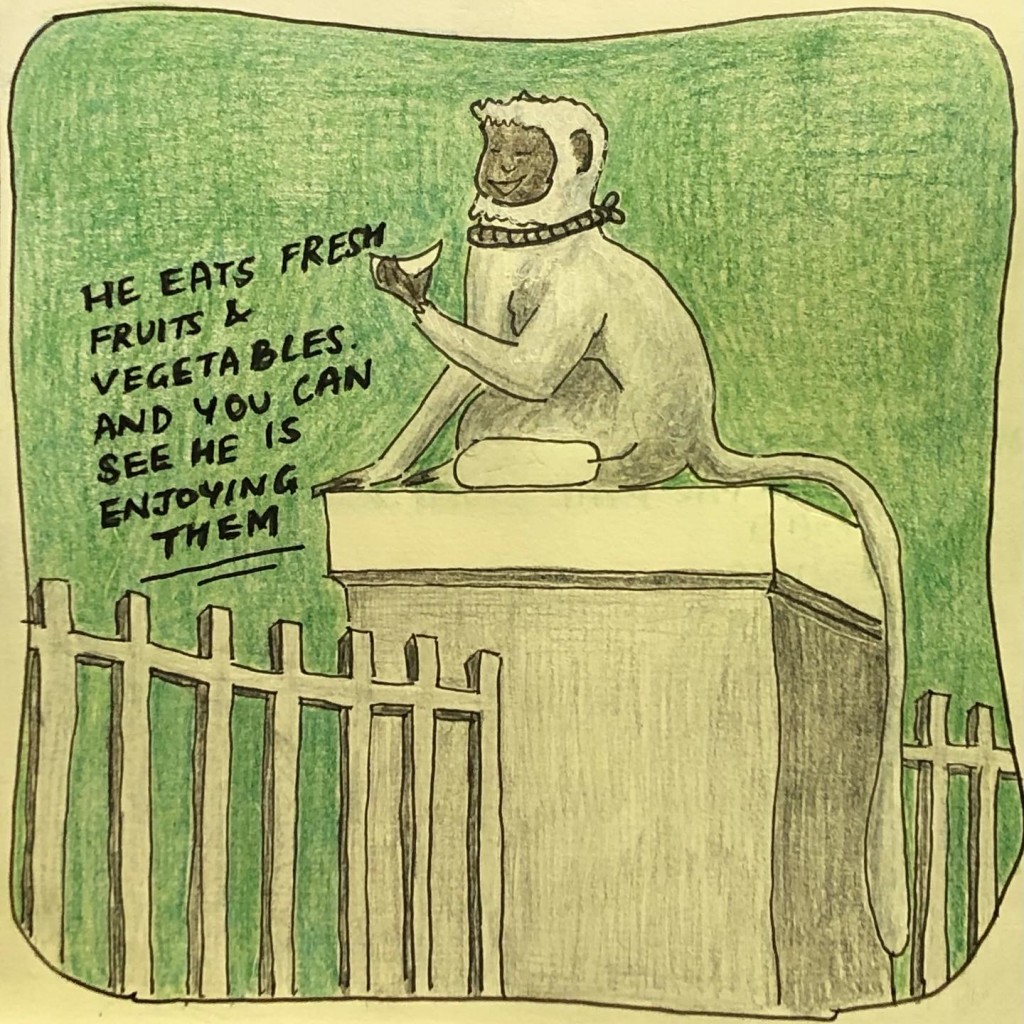 HE EATS FRESH
FRUITS &
VEGETABLES.
AND YOU CAN
SEE HE IS
ENJOYING
THEM